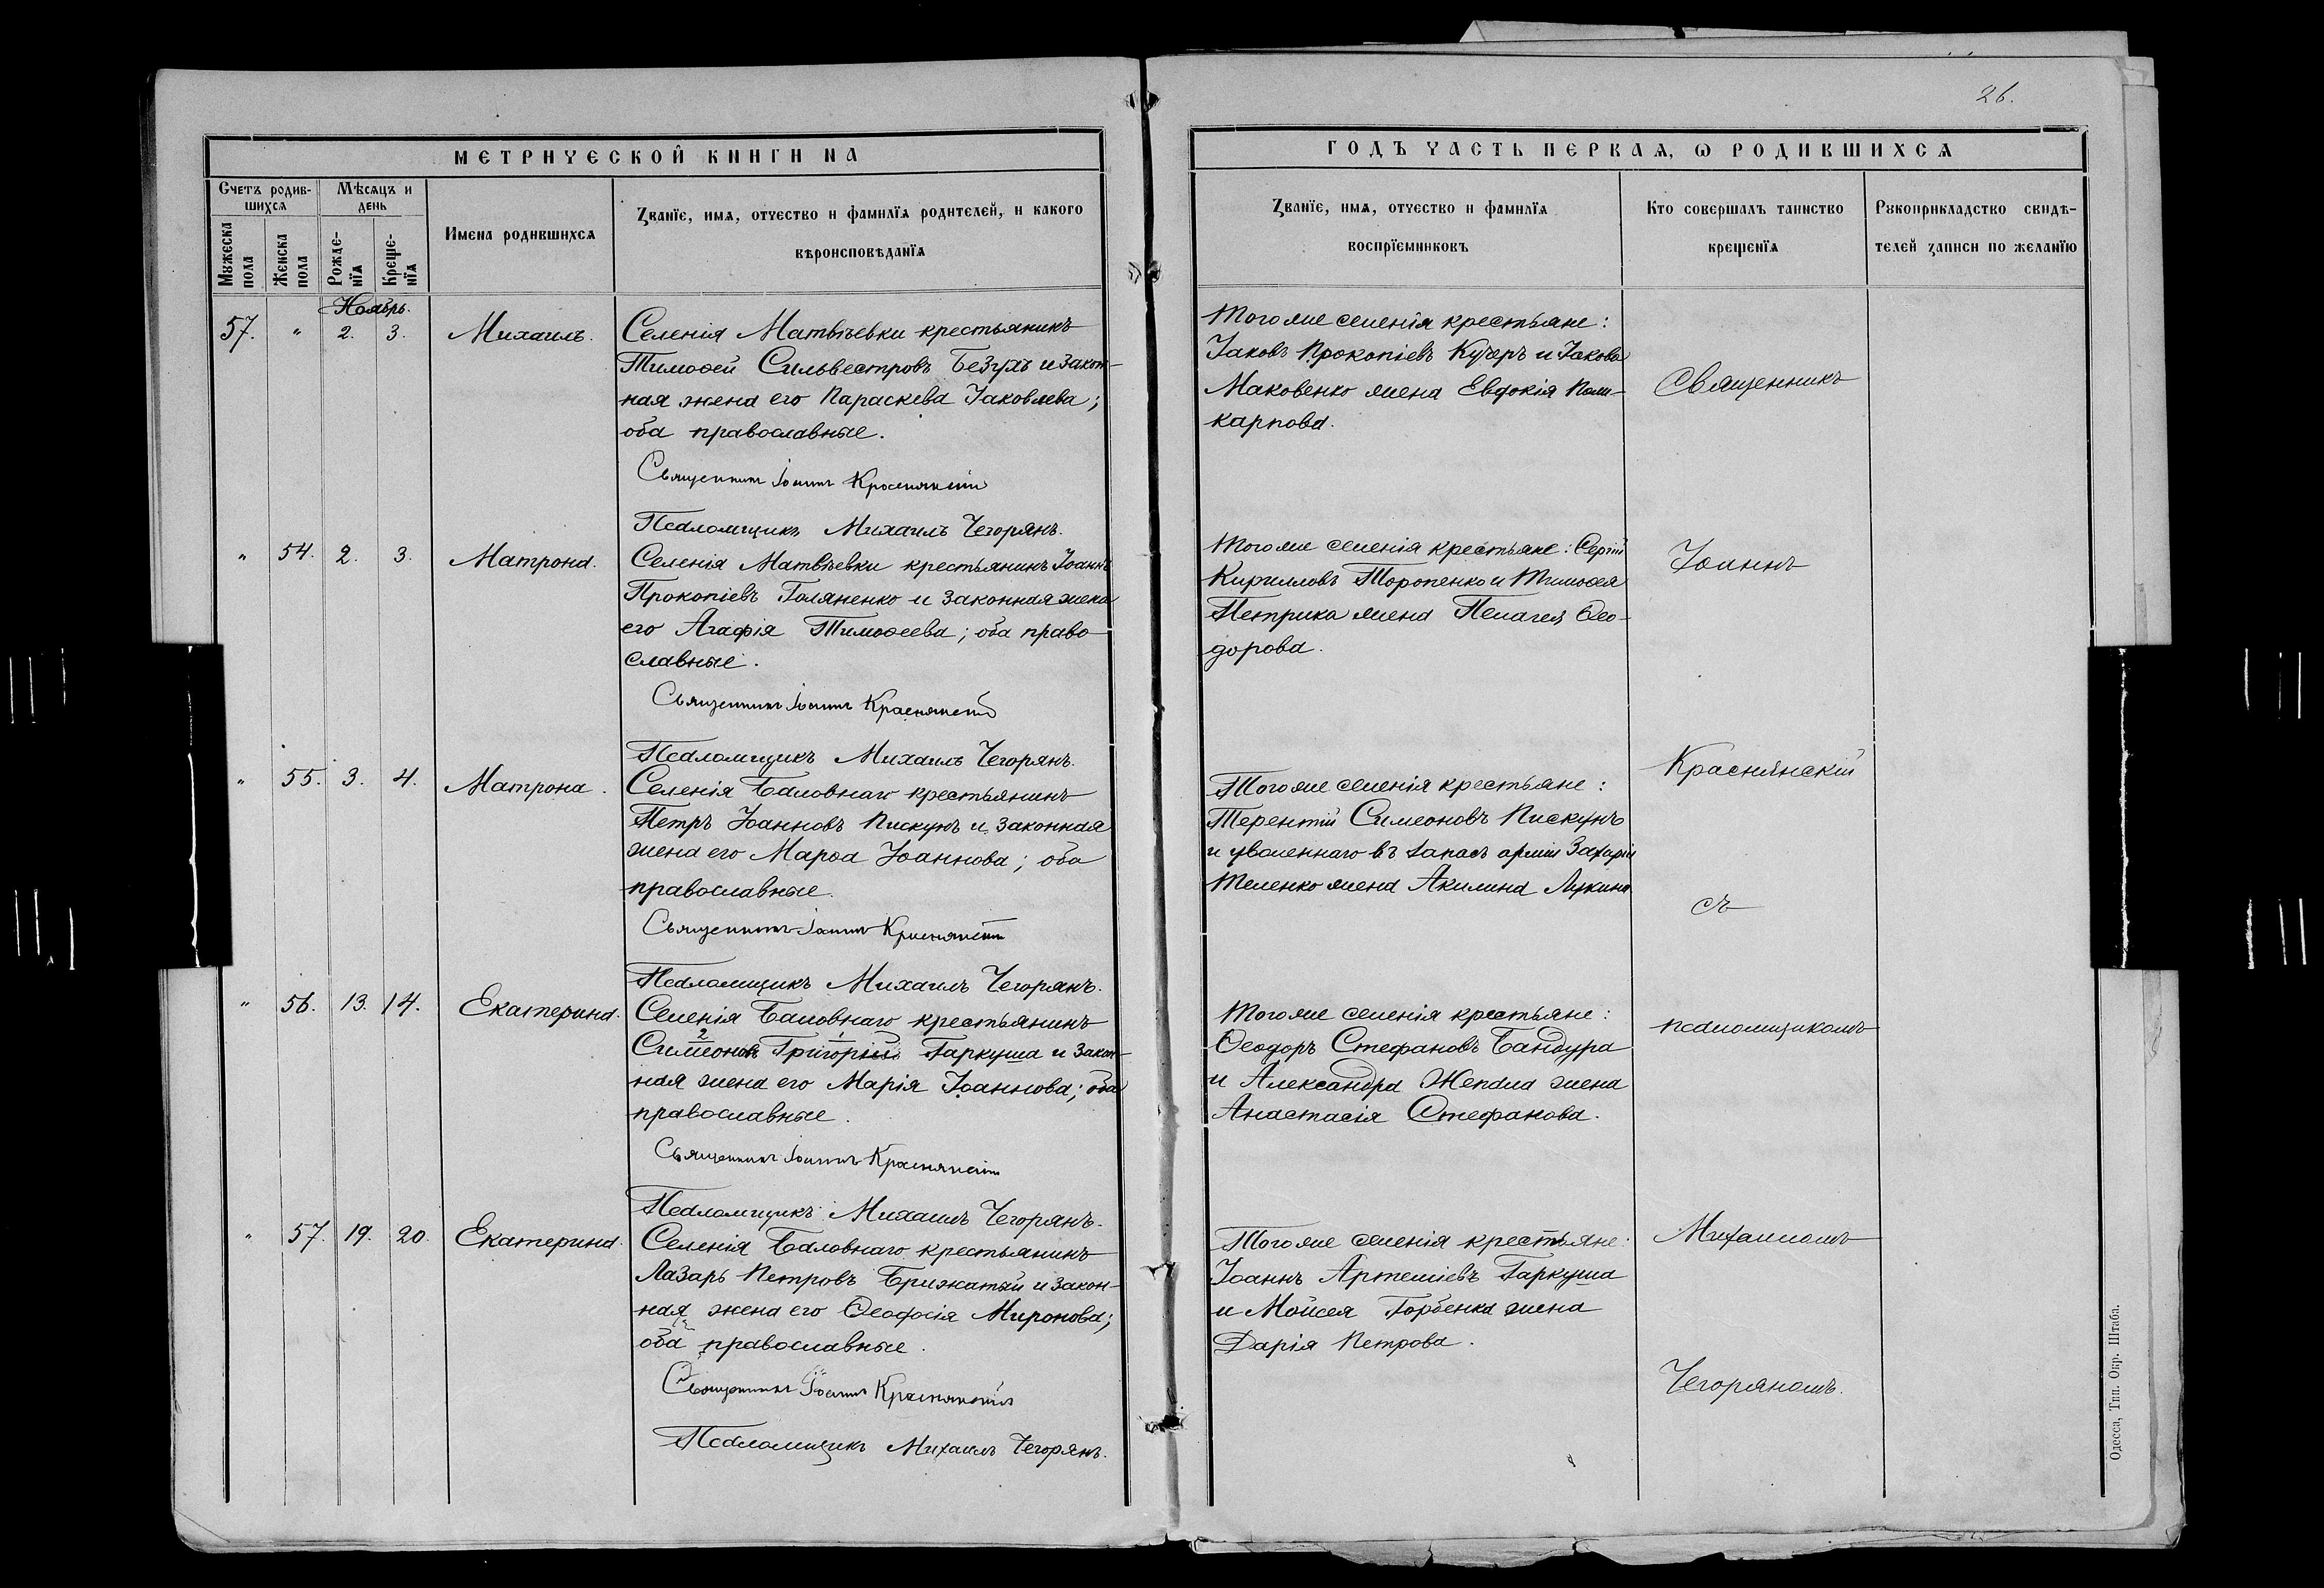 26.
МЕТРИЧЕСКОЙ КНИГИ НА
ГОДЪ ЧАСТЬ ПЕРВАЯ, Ѡ РОДИВШИХСЯ
Счетъ родив-
шихся
Мѣсяцъ и
день
Мужеска
пола
Женска
пола
Рожде-
нїя
Креще-
нїя
Имена родившихся
Званїе, имя, отчество и фамилїя родителей, и какого
вѣроисповѣданїя
Званїе, имя, отчество и фамилїя
воспрїемниковъ
Кто совершалъ таинство
крещенїя
Рукоприкладство свидѣ-
телей записи по желанїю
Ноябрь.
57. " 2. 3. Михаилъ.
Селенія Матвѣевки крестьянинъ
Тимоѳей Сильвестровъ Безухъ и закон-
ная жена его Параскева Іаковлева;
оба православные.
Священникъ Іоаннъ Краснянскій
Псаломщикъ Михаилъ Чегорянъ.
Того же селенія крестьяне:
Іаковъ Прокопіевъ Кучеръ и Іакова
Маковенко жена Евдокія Поли-
карпова.
" 54. 2. 3. Матрона.
Селенія Матвѣевки крестьянинъ Іоаннъ
Прокопіевъ Голяненко и законная жена
его Агафія Тимоѳеева; оба право-
славные.
Священникъ Іоаннъ Краснянскій
Псаломщикъ Михаилъ Чегорянъ.
Того же селенія крестьяне: Сергій
Кирилловъ Торопенко и Тимоѳея
Петрика жена Пелагея Ѳео-
дорова.
" 55. 3. 4. Матрона.
Селенія Баловнаго крестьянинъ
Петръ Іоанновъ Пискунъ и законная
жена его Марѳа Іоаннова; оба
православные.
Священникъ Іоаннъ Краснянскій
Псаломщикъ Михаилъ Чегорянъ.
Того же селенія крестьяне:
Терентій Симеоновъ Пискунъ
и уволеннаго въ запасъ арміи Захарія
Теленко жена Акилина Лукина
" 56. 13. 14. Екатерина.
Селенія Баловнаго крестьянинъ
2
Симеонъ Григорій Гаркуша и закон-
ная жена его Марія Іоаннова; оба
православные.
Священникъ Іоаннъ Краснянскій
Псаломщикъ Михаилъ Чегорянъ.
Того же селенія крестьяне:
Ѳеодоръ Стефановъ Бандура
и Александра Жепала жена
Анастасія Стефанова.
" 57. 19. 20. Екатерина.
Селенія Баловнаго крестьянинъ
Лазарь Петровъ Брижатый и закон-
ная жена его Ѳеодосія Миронова;
оба православные.
Священникъ Іоаннъ Краснянскій
Псаломщикъ Михаилъ Чегорянъ.
Того же селенія крестьяне:
Іоаннъ Артеміевъ Гаркуша
и Мойсея Горбенка жена
Дарія Петрова.
Священникъ
Іоаннъ
Краснянскій
съ
псаломщикомъ
Михаиломъ
Чегоряномъ.
Одесса, Тип. Окр. Штаба.